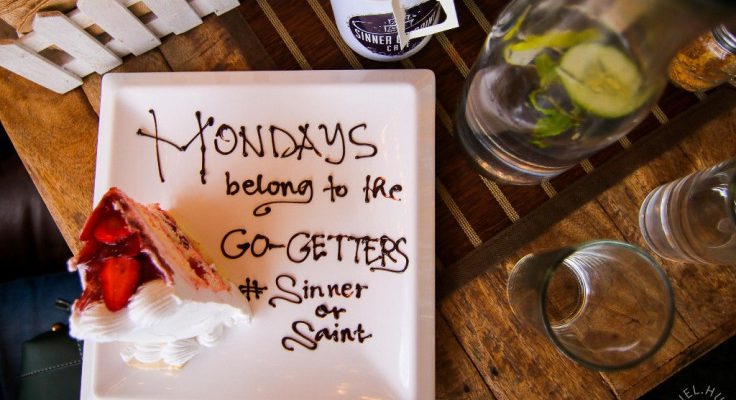 SINNER
CAFE
MONDAYS
belong to the
GO-GETTERS
#Sinner
or
Saint